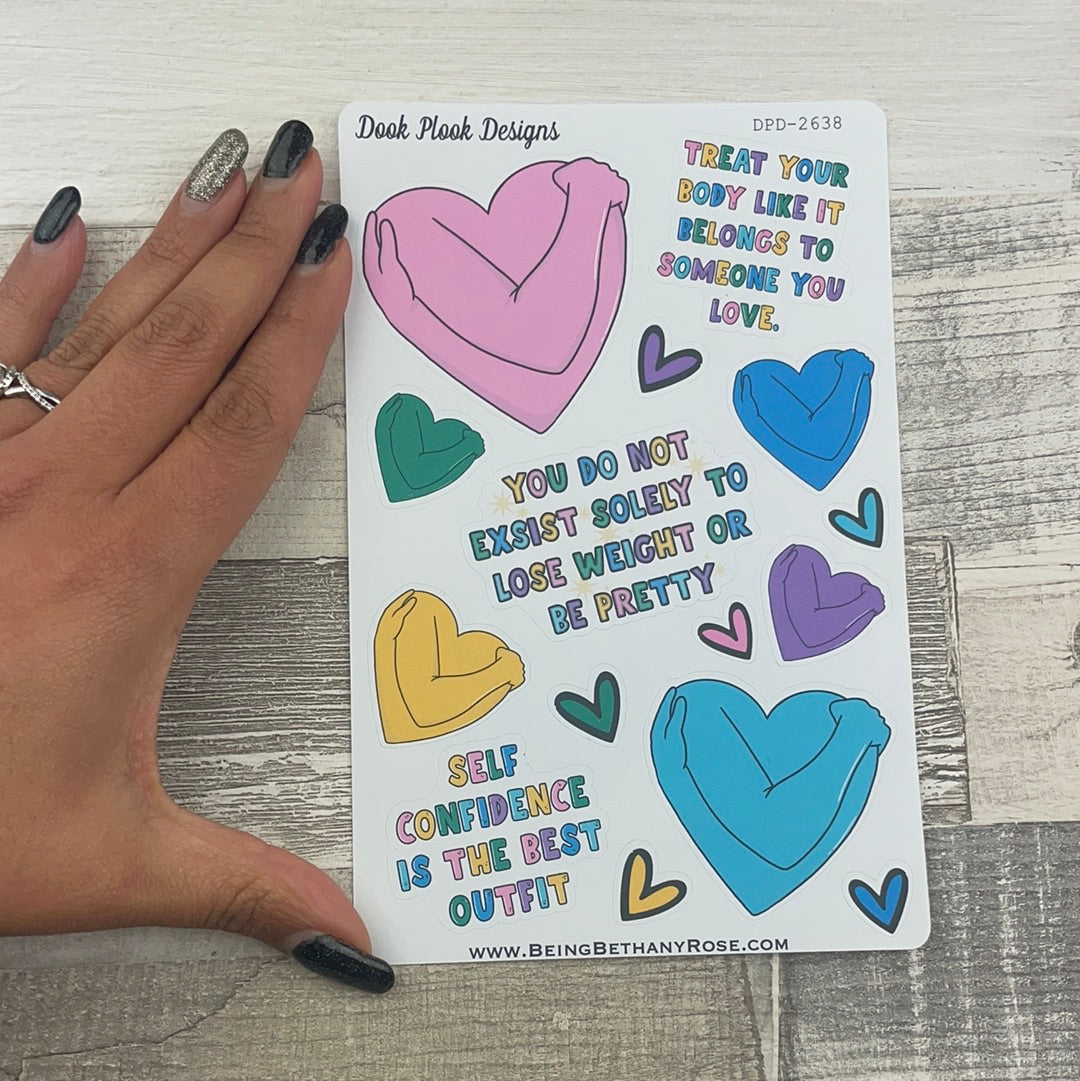 Dook Plook Designs
DPD-2638
TREAT YOUR
BODY LIKE IT
BELONGS TO
SOMEONE YOU
LOVE.
YOU DO NOT
EXSIST SOLELY TO
LOSE WEIGHT OR
BE PRETTY
SELF
CONFIDENCE
IS THE BEST
OUTFIT
www.BeingBethanyRose.com